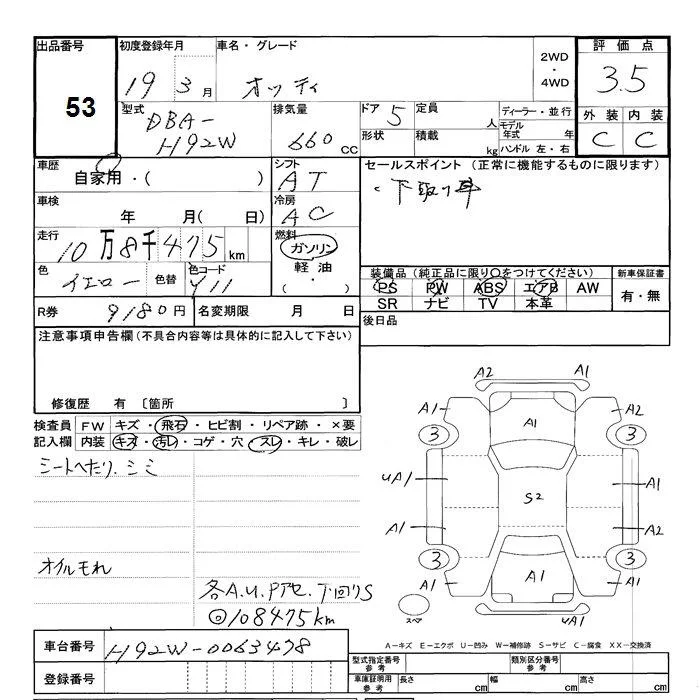 出品番号 初度登録年月 車名・グレード 2WD・4WD 評価点
53
19年 3月 オッティ 3.5
型式 排気量 ドア 定員 ディーラー・並行 外装 内装
DBA- 5 人 モデル年式 年 C C
H92W 660cc 形状 積載 kg ハンドル 左・右
車歴 シフト セールスポイント (正常に機能するものに限ります)
自家用・( ) AT ・下取り車
車検 冷房
年 月( 日) AC
走行 燃料
10万8千475km ガソリン
色 色替 色コード 軽油 装備品 (純正品に限り○をつけてください) 新車保証書
イエロー Y11 (・) PS PW ABS エアB AW 有・無
SR ナビ TV 本革
R券 9180円 名変期限 月 日 後日品
注意事項申告欄 (不具合内容等は具体的に記入して下さい)
修復歴 有 〔箇所 〕
検査員 FW キズ・飛石・ヒビ割・リペア跡・×要
記入欄 内装 キズ・汚レ・コゲ・穴・スレ・キレ・破レ
シートへたり、シミ
オイルモれ
各A.U.Pアセ.下回りS
◎108475km
A2 A1
A1 A1 A2
3 3
UA1 S2 A1
A1 A2
3 3
A1 A1 A1
スペア UA1
A－キズ E－エクボ U－凹み W－補修跡 S－サビ C－腐食 XX－交換済
車台番号 H92W-0063478
登録番号
型式指定番号 参考 類別区分番号 参考
車庫証明用 参考 長さ cm 幅 cm 高さ cm